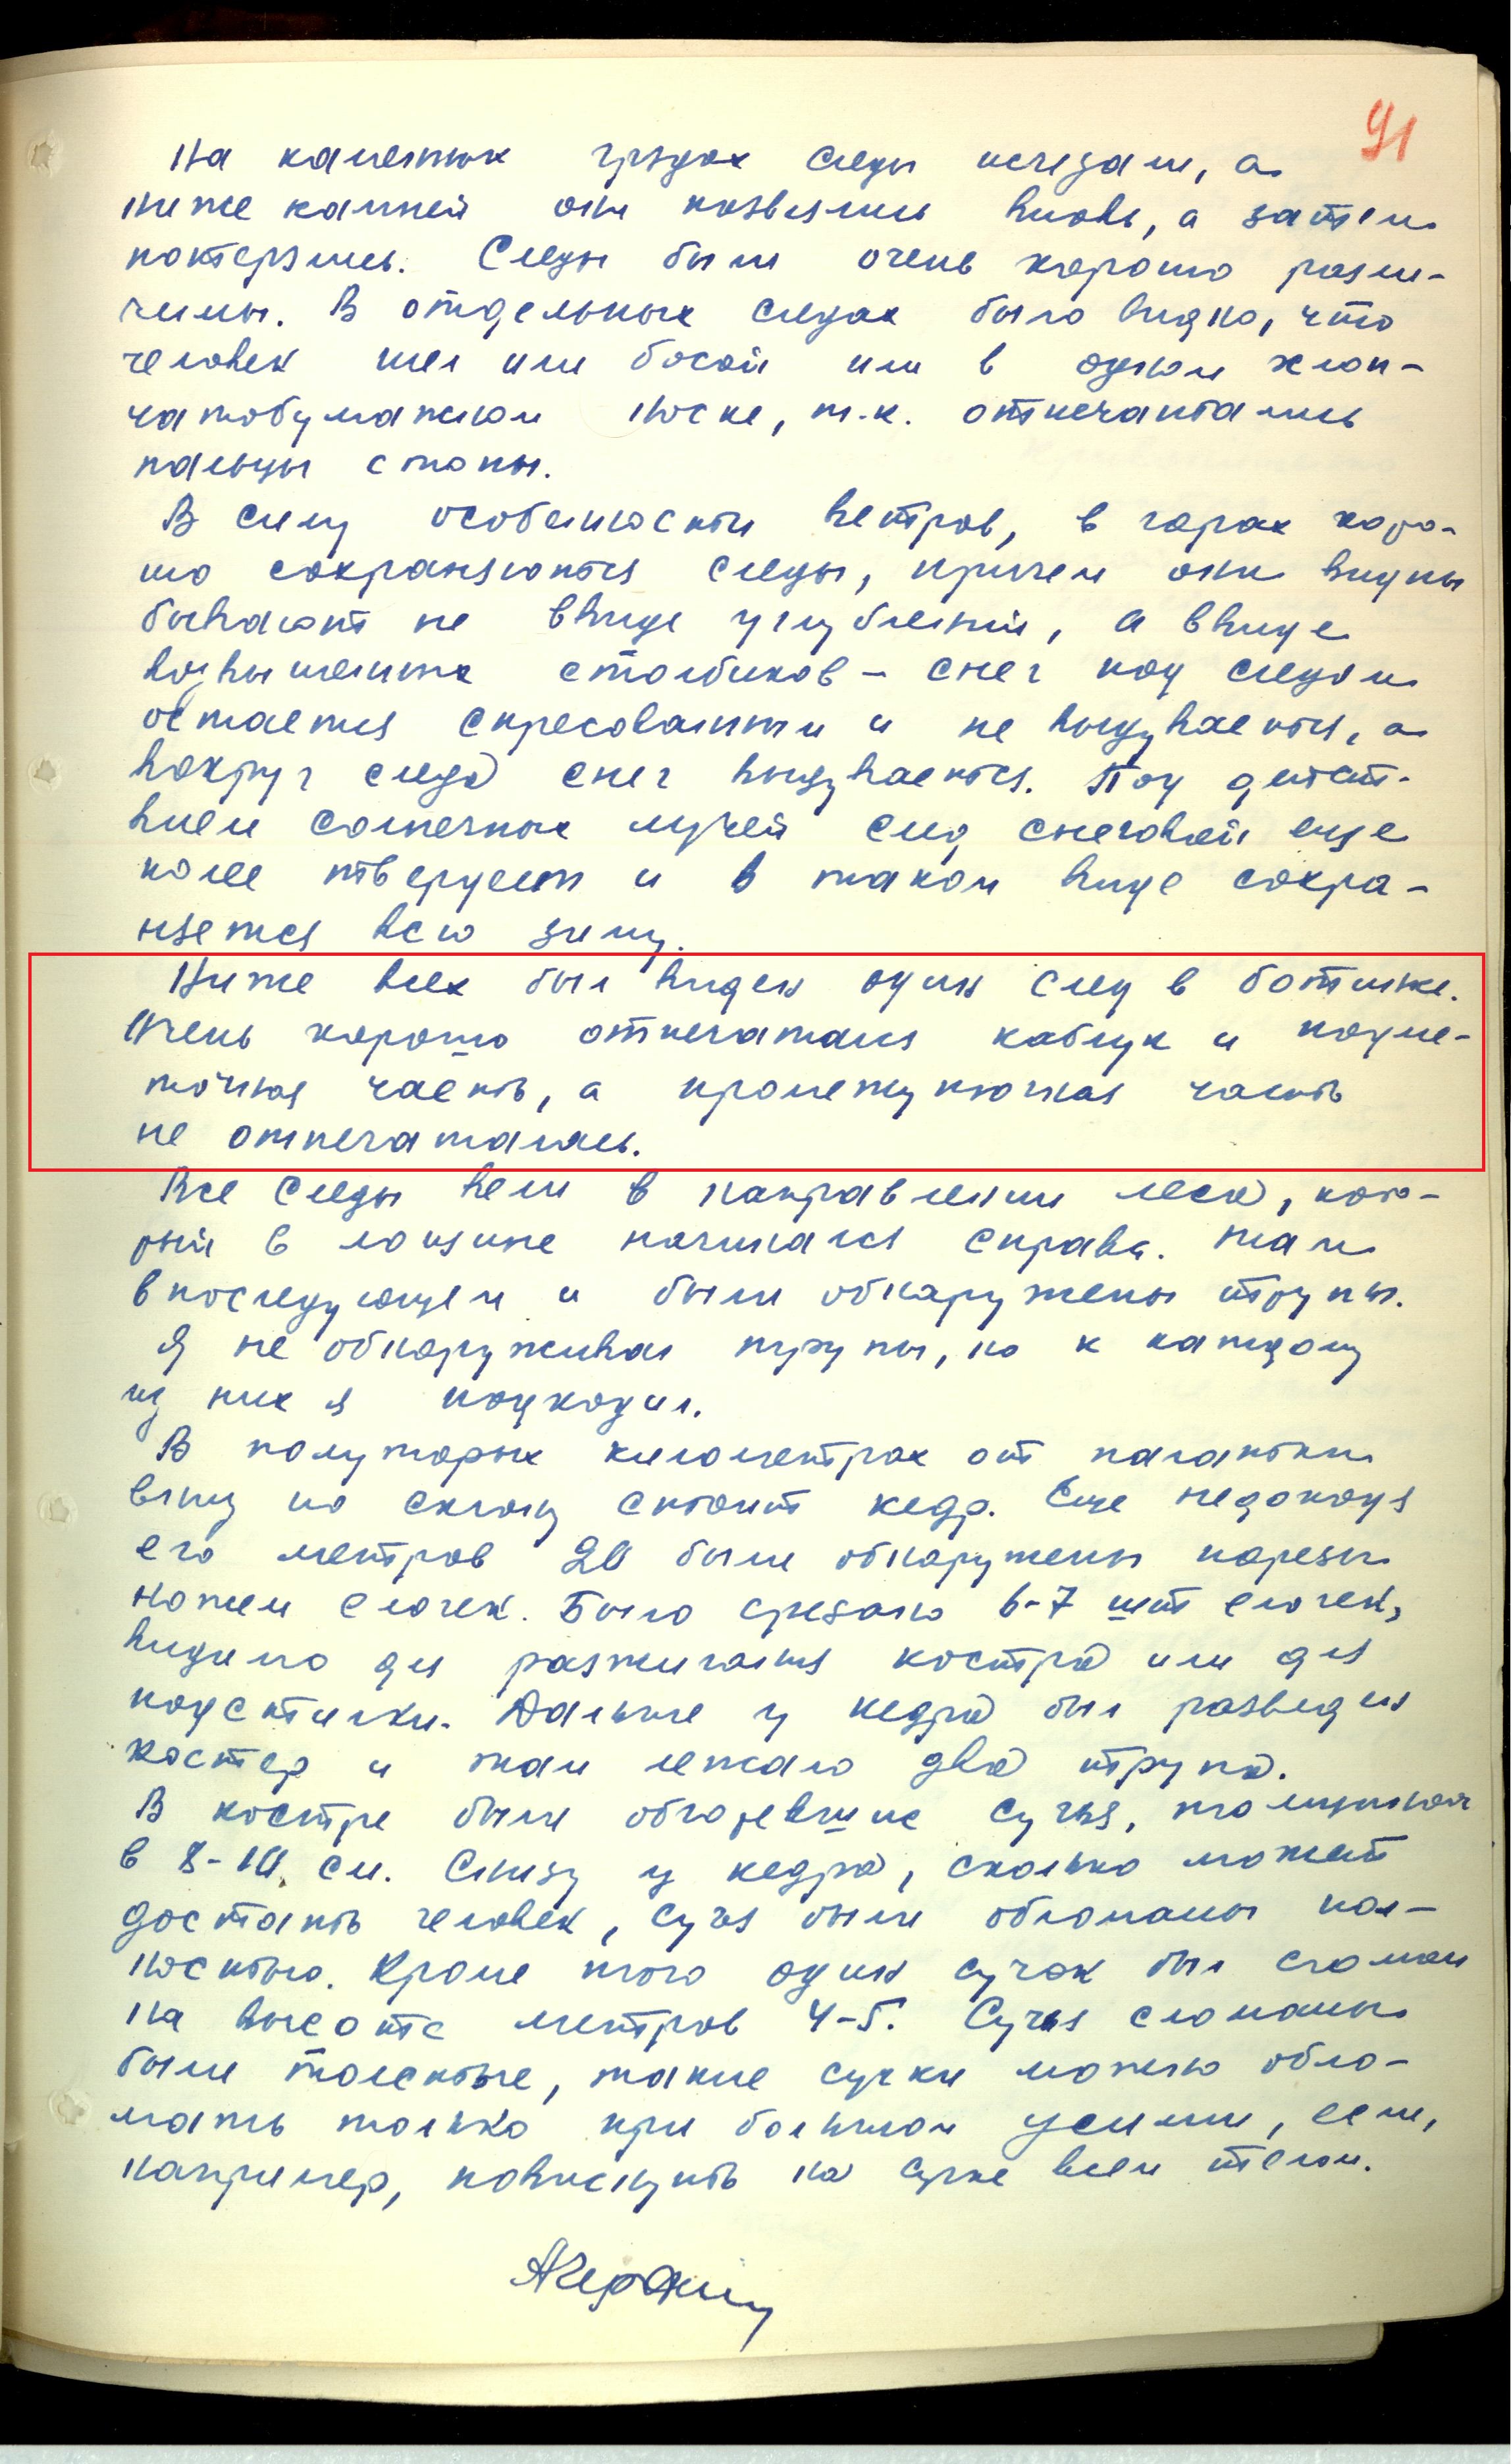 91
На каменных грядах следы исчезали, а
ниже камней они появились вновь, а затем
потерялись. Следы были очень хорошо разли-
чимы. В отдельных следах было видно, что
человек шел или босой или в одном хлоп-
чатобумажном носке, т.к. отпечатались
пальцы стопы.
В силу особенности ветров, в горах хоро-
шо сохраняются следы, причем они видны
бывают не ввиде углублений, а ввиде
возвышенных столбиков - снег под следом
остается спресованным и не выдувается, а
вокруг следа снег выдувается. Под дейст-
вием солнечных лучей след снеговой еще
более твердеет и в таком виде сохра-
няется всю зиму.
Ниже всех был виден один след в ботинке.
Очень хорошо отпечатался каблук и подме-
точная часть, а промежуточная часть
не отпечаталась.
Все следы вели в направлении леса, кото-
рый в лощине начинался справа. Там
впоследующем и были обнаружены трупы.
Я не обнаруживал трупы, но к каждому
из них я подходил.
В полуторых километрах от палатки
вниз по склону стоит кедр. Еще недоходя
его метров 20 были обнаружены порезы
ножем елочек. Было срезано 6-7 шт елочек,
видимо для разжигания костра или для
подстилки. Дальше у кедра был разведен
костер и там лежало два трупа.
В костре были обгоревшие сучья, толщиной
в 8-10 см. Снизу у кедра, сколько может
достать человек, сучья были обломаны пол-
ностью. Кроме того один сучок был сломан
на высоте метров 4-5. Сучья сломаны
были толстые, такие сучки можно обло-
мать только при большом усилии, если,
например, повиснуть на сучке всем телом.